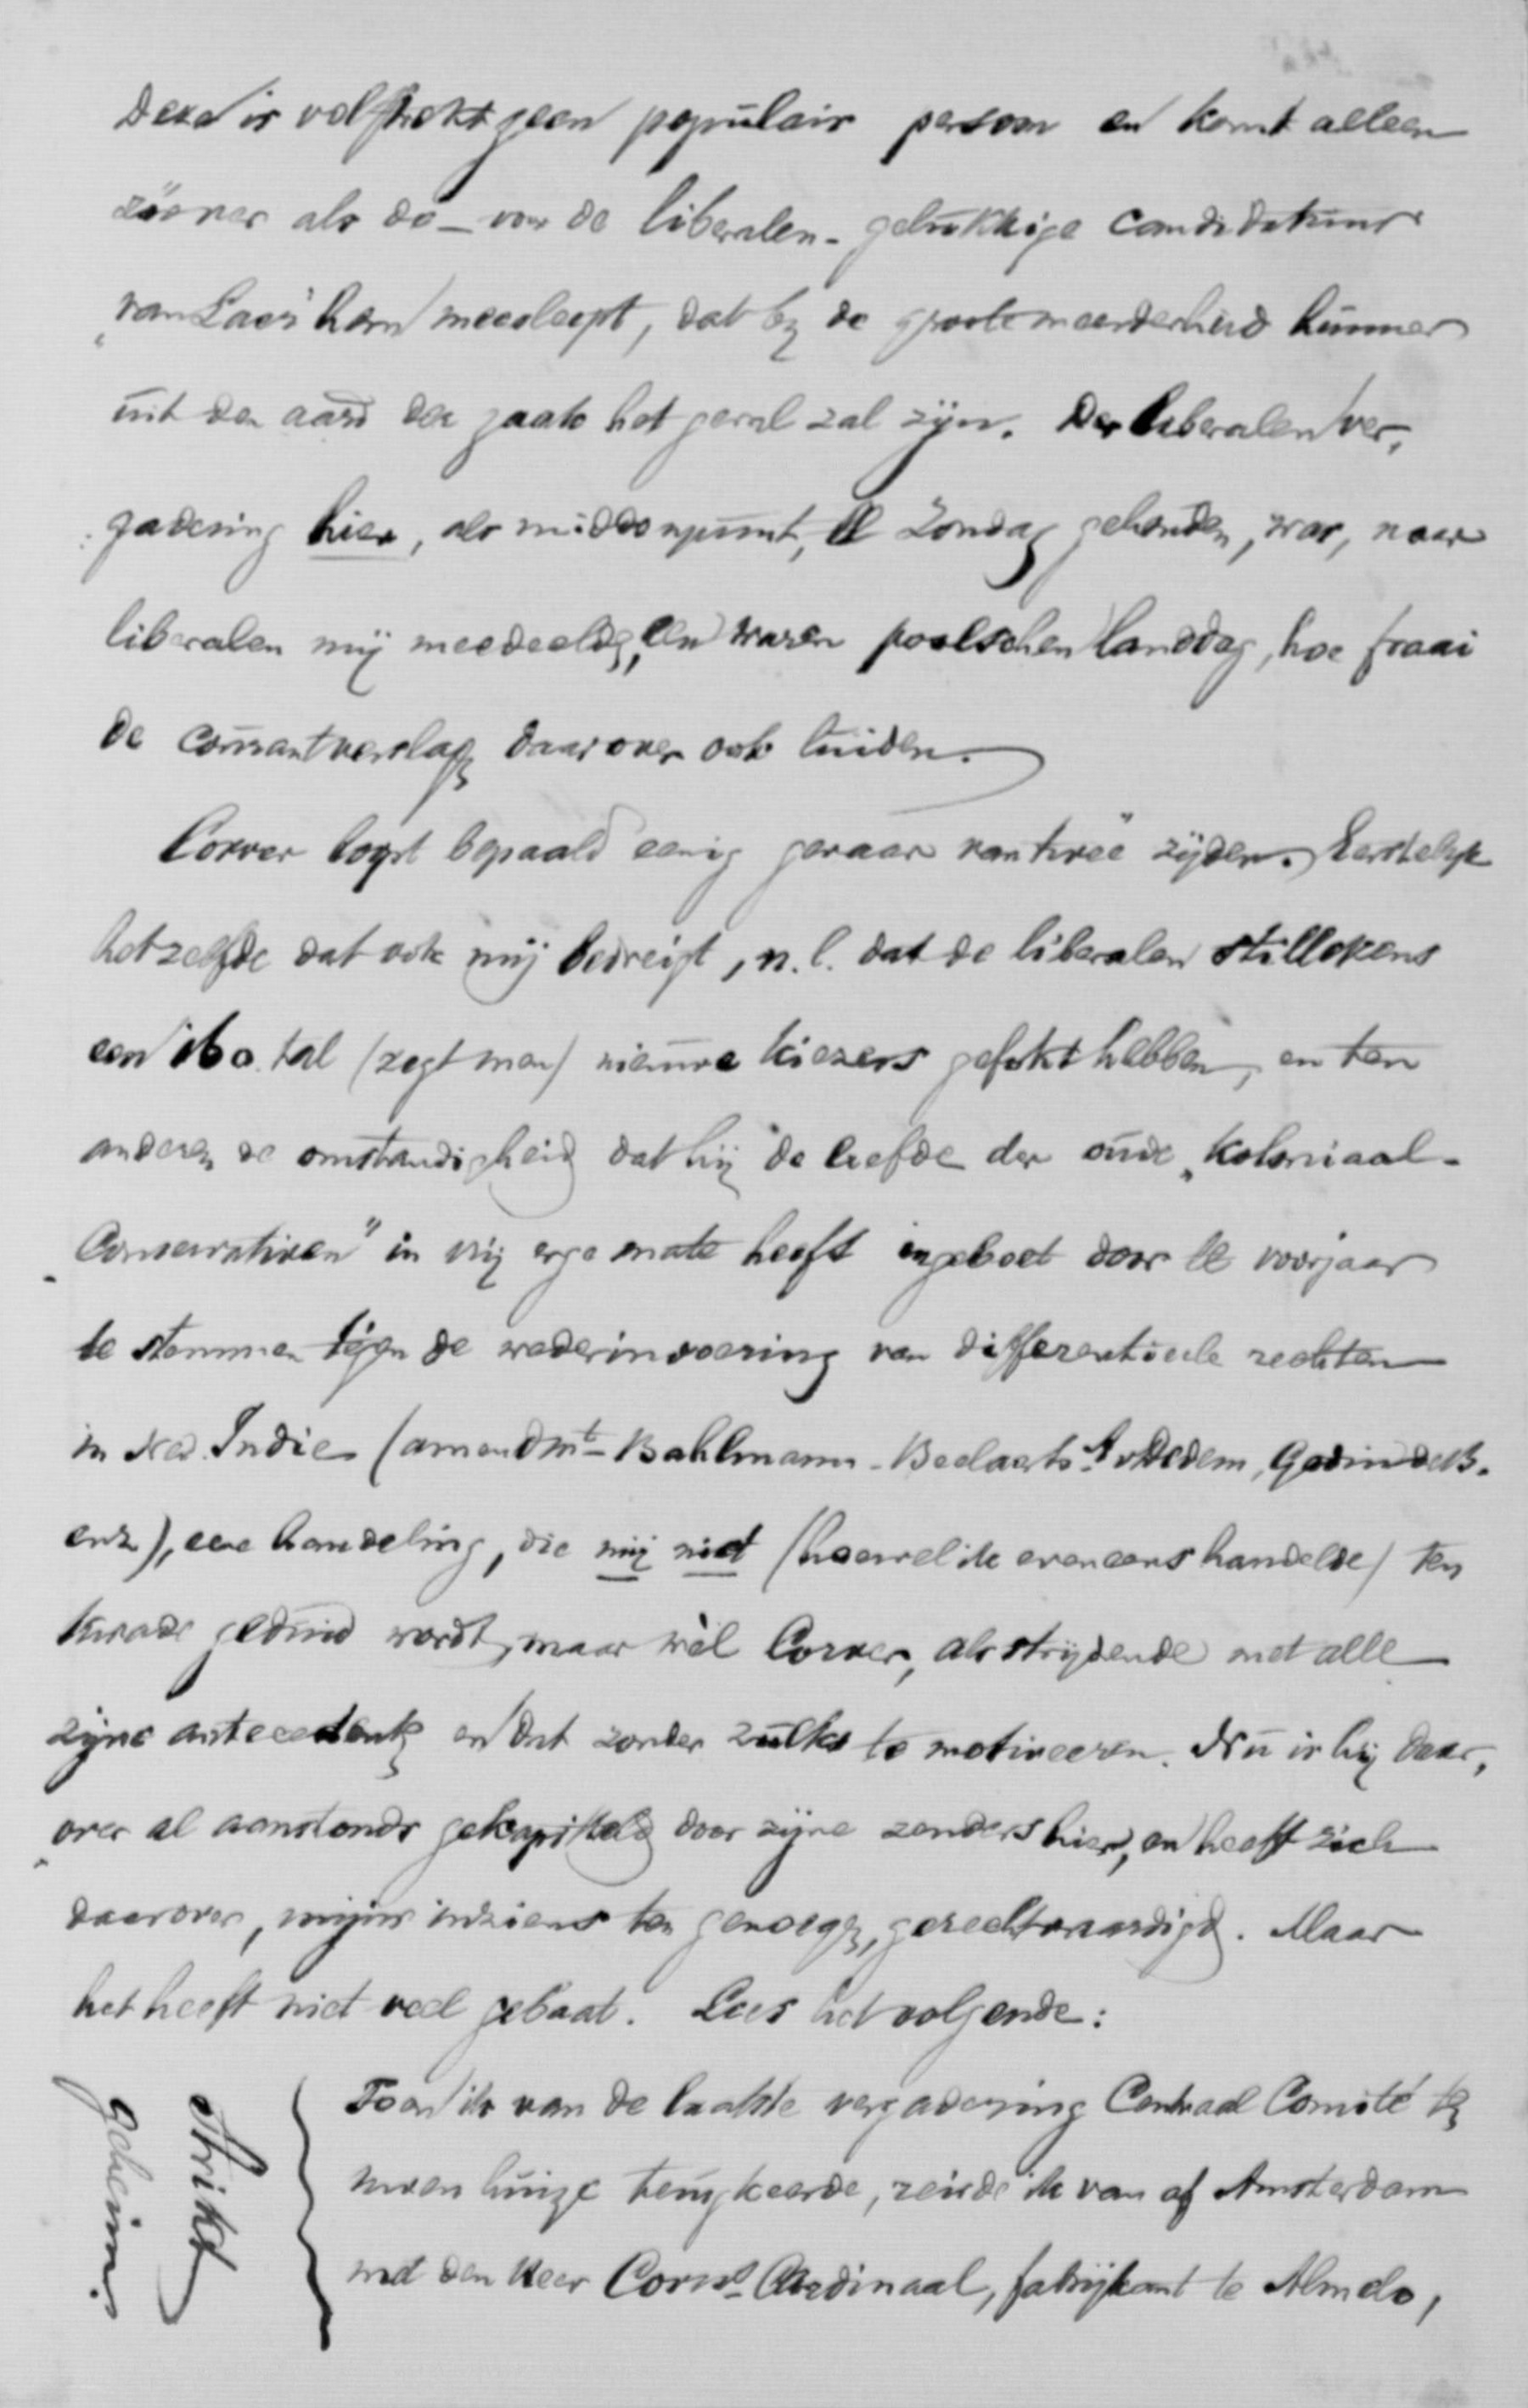 Deze is volstrekt geen populair persoon en komt alleen
zóóver als de – voor de liberalen – gelukkige candidatuur
„van Laer" hem meesleept, dat bij de groote meerderheid hunner
uit den aard der zaak het geval zal zijn. De liberalen ver„
gadering hier, als middenpunt, ll Zondag gehouden, was, naar
liberalen mij meedeelden, een waren poolschen landdag, hoe fraai
de courantverslagen daarover ook luiden.
Corver loopt bepaald eenig gevaar van twee zijden. Eerstelijk
hetzelfde dat ook mij bedreigt, n.l. dat de liberalen stillekens
een 160 tal (zegt men) nieuwe kiezers gefokt hebben, en ten
anderen de omstandigheid dat hij de liefde der oude „Koloniaal-
Conservativen" in vrij erge mate heeft ingeboet door ll voorjaar
te stemmen tégen de wederinvoering van differentieele rechten
in Ned. Indie (amendmt Bahlmann - Beelaerts, v Dedem, Godin de B.
enz), eene handeling, die mij niet (hoewel ik eveneens handelde) ten
kwade geduid wordt, maar wèl Corver, als strijdende met alle
zijne antecedenten en dat zonder zulks te motiveeren. Nu is hij daar„
over al aanstonds gekapitteld door zijne zenders hier, en heeft zich
daarover, mijns inziens ten genoegen, gerechtvaardigd. Maar
het heeft niet veel gebaat. Lees het volgende:
Toen ik van de laatste vergadering Centraal Comité te
mijnen huize terugkeerde, reisde ik van af Amsterdam
met den Heer Corns Cardinaal, fabrijkant te Almelo,
Strikt
geheim.